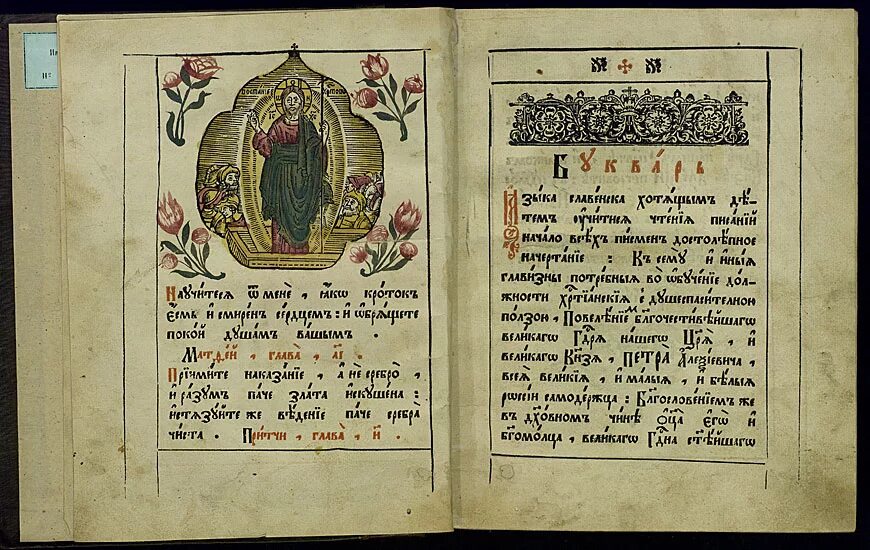 ИС ХС
Научитеся ѿ менѐ, ꙗ҆́кѡ кро́токъ
є҆́смь и҆ смире́нъ се́рдцемъ : и҆ ѡ҆брѧ́щете
поко́й дꙋша́мъ ва́шымъ .
Матѳе́й , глава̀ , а҃і .
Прїими́те наказа́нїе , а҆ не сребро̀ ,
и҆ ра́зꙋмъ па́че зла́та и҆скꙋ́шена :
и҆стѧзꙋ́йте же вѣ́дѣнїе па́че сребра̀
чи́ста . При́тчи , глава̀ , и҃ .
Бꙋква́рь
Ꙗ҆зы́ка славе́нска хотѧ́щымъ дѣ́-
темъ ᲂу҆чи́тисѧ чте́нїѧ писа́нїй
нача́ло всѣ́хъ пи́сменъ достолѣ́пное
начерта́нїе : Къ семꙋ̀ и҆ и҆ны́ѧ
глави́зны потре́бныѧ во ѡ҆бꙋче́нїе до́л-
жности хрⷭ҇тїа́нскїѧ с̾ дꙋшеспаси́телною
по́лзою , Повелѣ́нїемъ бл҃гочести́вѣйшагѡ
вели́кагѡ Гдⷭ҇рѧ на́шегѡ Цр҃ѧ̀ , и҆
вели́кагѡ Кнѧ́зѧ , ПЕТРА̀ А҆леѯі́евича ,
всеѧ̀ вели́кїѧ , и҆ ма́лыѧ , и҆ бѣ́лыѧ
рѡссі́и самоде́ржца : Бл҃гослове́нїемъ же
въ дх҃о́вномъ чи́нѣ ѻ҆ц҃а̀ є҆гѡ̀ и҆
бг҃омо́лца , вели́кагѡ Гдⷭ҇на ст҃ѣ́йшагѡ